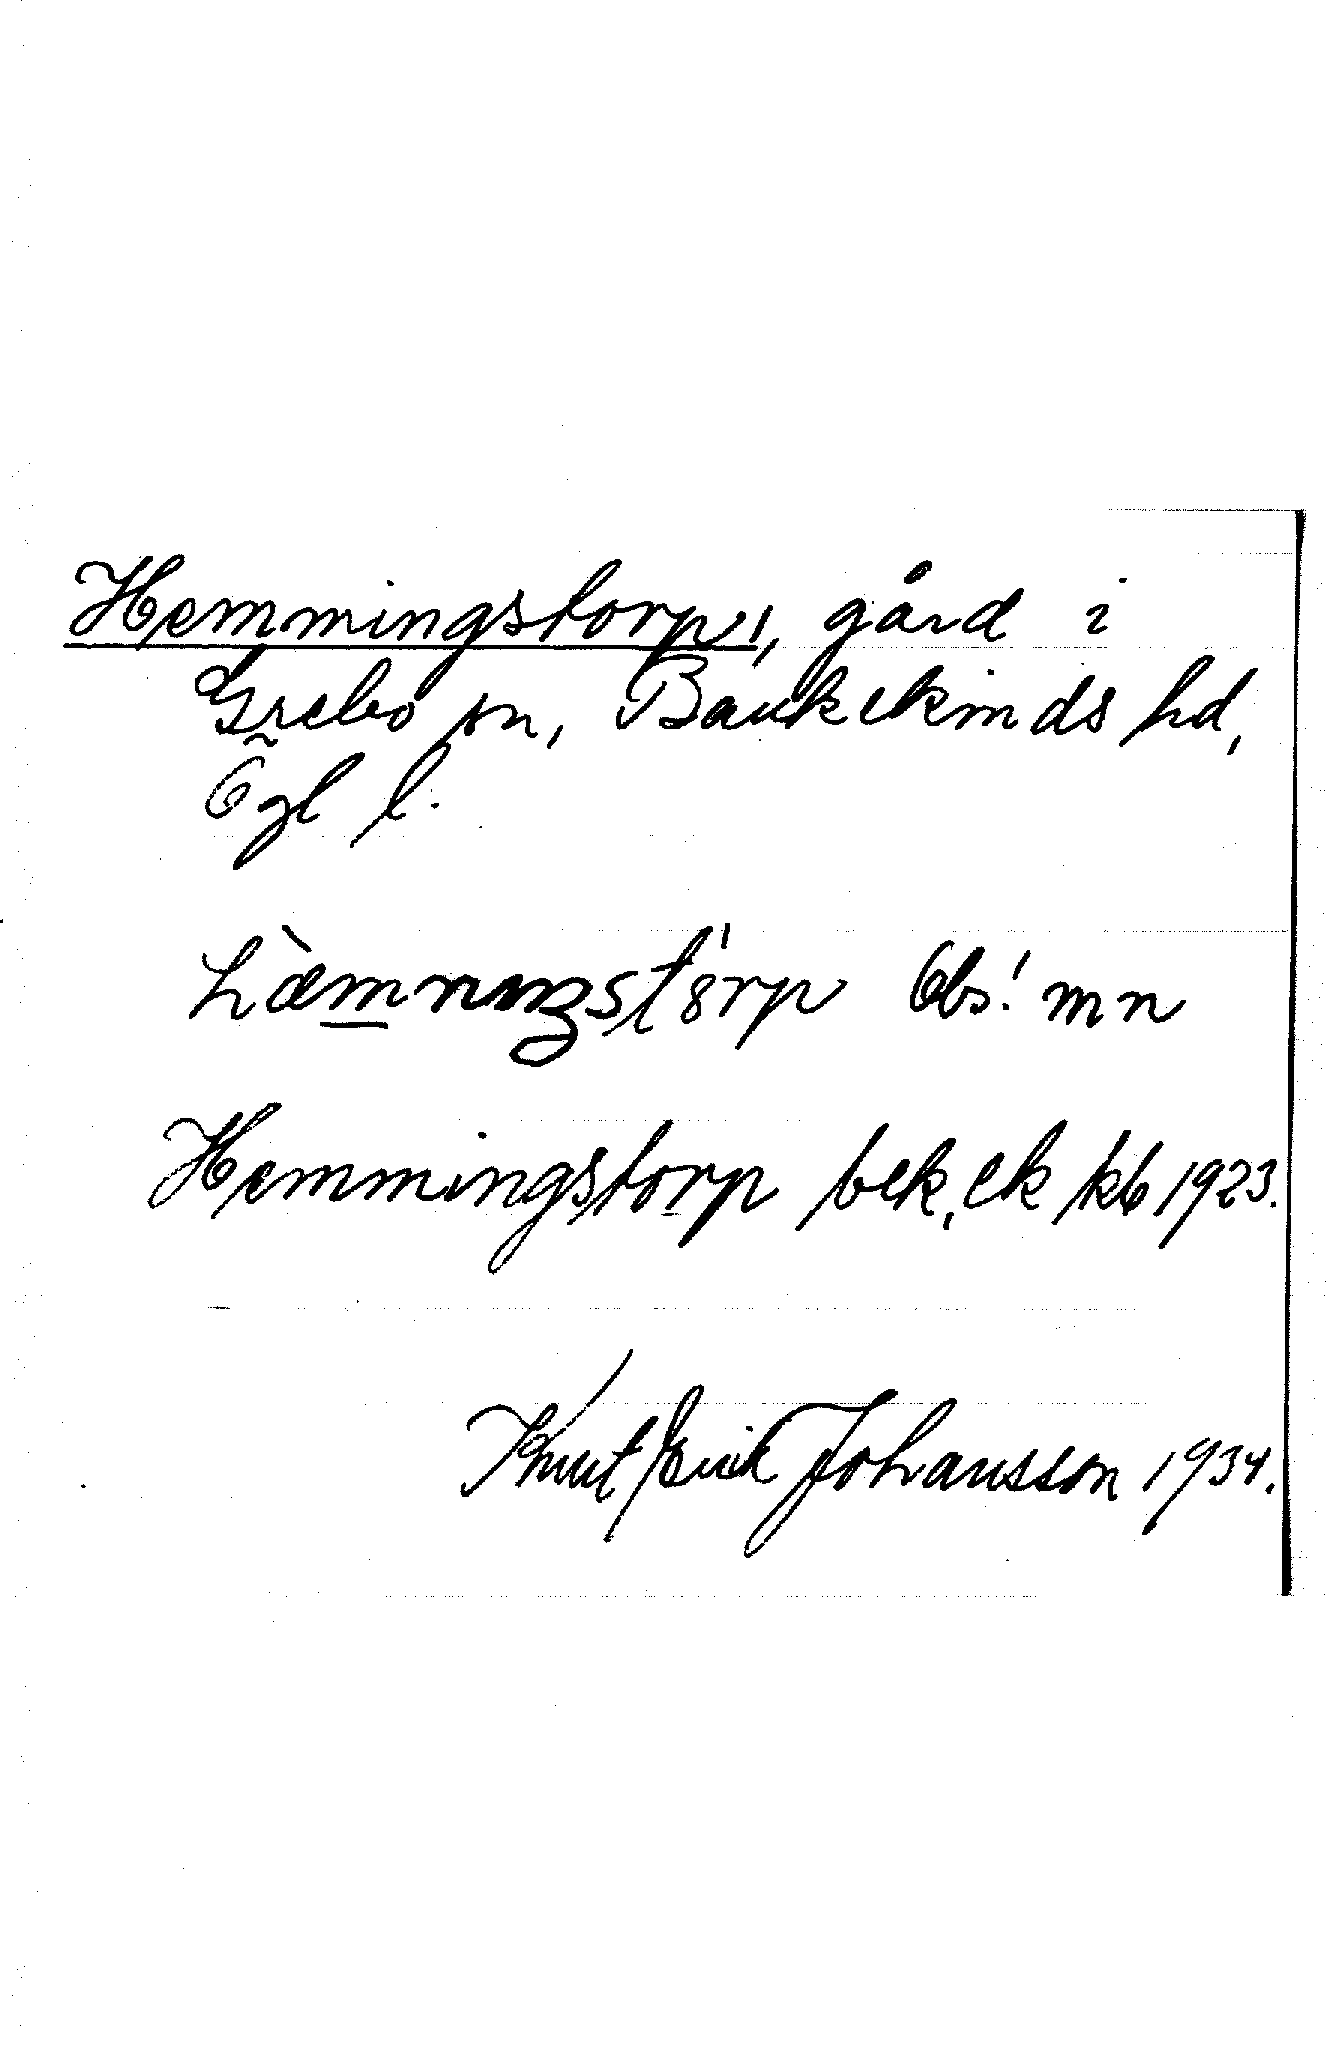 Hemmingstorp, gård i
Grebo sn, Bankekinds hd,
Ögl l.
Obs! mn
Hemmingstorp bek, ek kb 1923.
Knut Erik Johansson 1934.